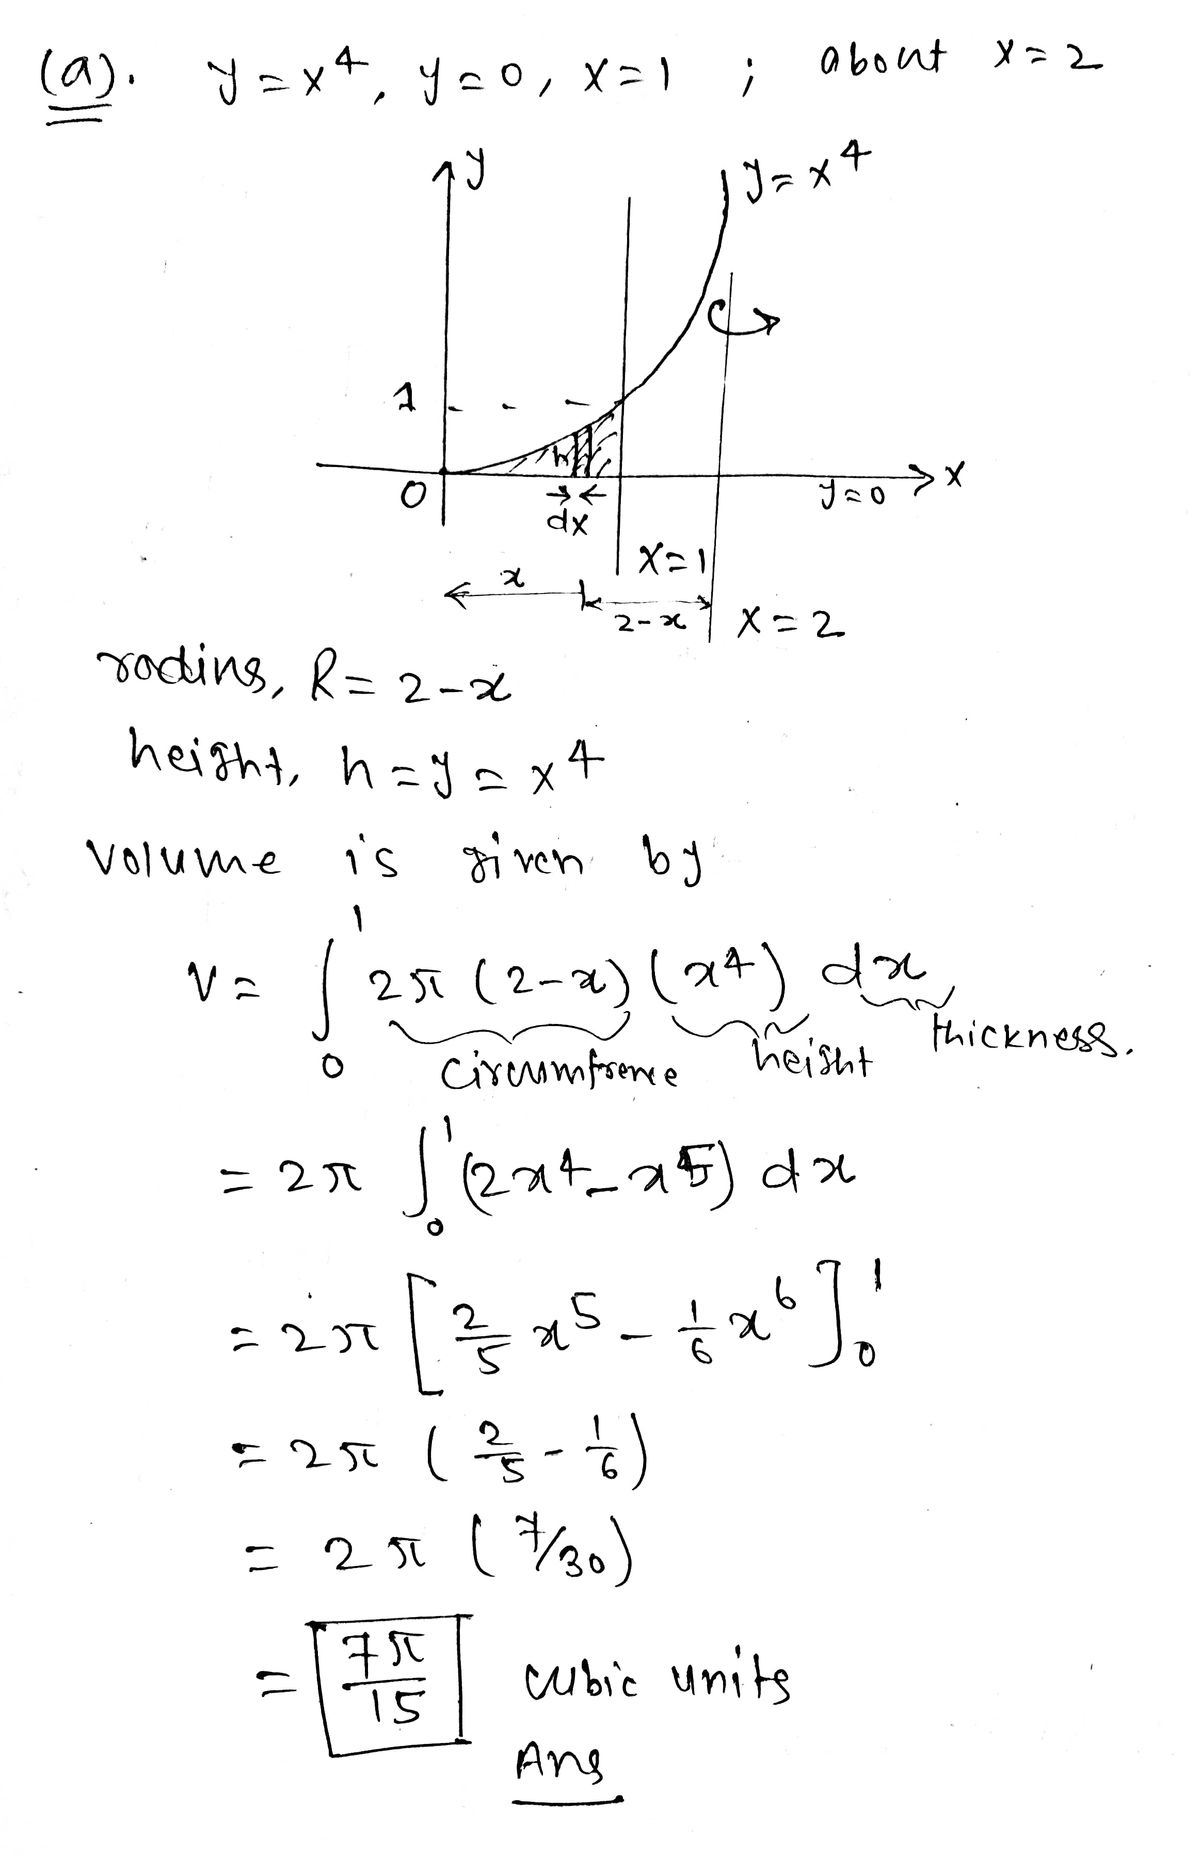 (a). y = x⁴, y = 0, x = 1 ; about x = 2
y
y = x⁴
1
h
0
x
y = 0
dx
x = 1
x
2-x
x = 2
radius, R = 2-x
height, h = y = x⁴
Volume is given by
V = ∫₀¹ 2π (2-x) (x⁴) dx
circumfrence height thickness.
= 2π ∫₀¹ (2x⁴ - x⁵) dx
= 2π [2/5 x⁵ - 1/6 x⁶]₀¹
= 2π (2/5 - 1/6)
= 2π (7/30)
= 7π/15 cubic units
Ans